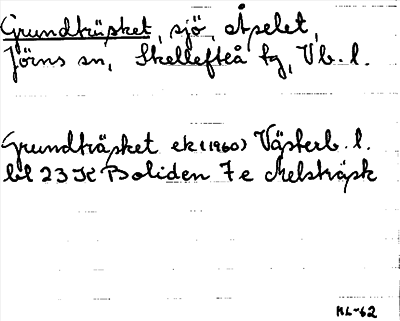 Grundträsket, sjö, Åselet,
Jörns sn, Skellefteå tg, Vb. l.
Grundträsket ek (1960) Västerb. l.
bl 23 K Boliden 7 e Melsträsk
NL-62